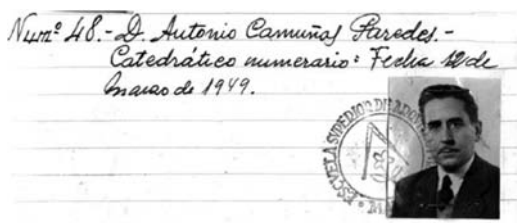 Num.º 48.- D. Antonio Camuñas Paredes.-
Catedrático numerario: Fecha 12 de
marzo de 1949.
ESCUELA SUPERIOR DE